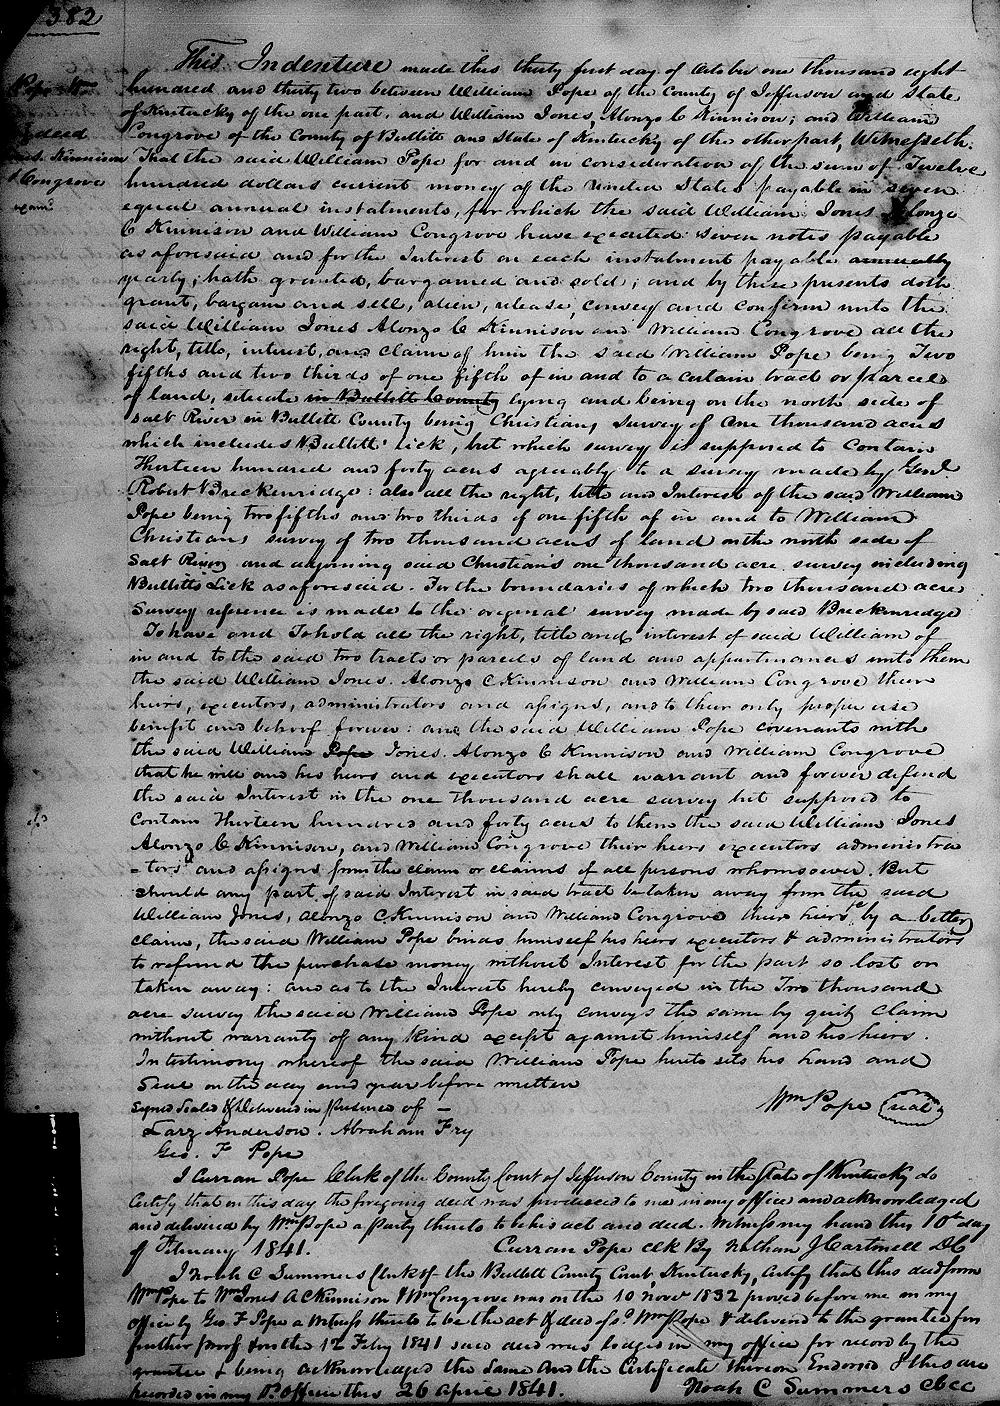 382
Pope Wm
deed
Jones. Kinnison
& Congrove
exam.d
This Indenture made this thirty first day of October one thousand eight
hundred and thirty two between William Pope of the County of Jefferson and State
of Kentucky of the one part, and William Jones, Alonzo C Kinnison; and William
Congrove of the County of Bullitt and State of Kentucky of the other part, Witnesseth.
That the said William Pope for and in consideration of the sum of Twelve
hundred dollars current money of the United States payable in seven
equal annual instalments, for which the said William Jones Alonzo
C Kinnison and William Congrove have executed seven notes payable
as aforesaid and for the Interest on each instalment payable annually
yearly; hath granted, bargained and sold; and by these presents doth
grant, bargain and sell, alien, release, convey and confirm unto the
said William Jones Alonzo C Kinnison and William Congrove all the
right, title, interest, and claim of him the said William Pope being Two
fifths and two thirds of one fifth of in and to a certain tract or parcel
of land, situate in Bullitt County lying and being on the north side of
Salt River in Bullitt County being Christians survey of One thousand acres
which includes Bullitts Lick, but which survey is supposed to contain
Thirteen hundred and forty acres agreeably to a survey made by Genl
Robert Breckenridge: also all the right, title and Interest of the said William
Pope being two fifths and two thirds of one fifth of in and to William
Christians survey of two thousand acres of land on the north side of
Salt River and adjoining said Christian's one thousand acre survey including
Bullitts Lick as aforesaid. For the boundaries of which two thousand acre
Survey reference is made to the original survey made by said Breckenridge
To have and To hold all the right, title and interest of said William of
in and to the said two tracts or parcels of land and appurtenances unto them
the said William Jones. Alonzo C Kinnison and William Congrove their
heirs, executors, administrators and assigns, and to their only proper use
benefit and behoof forever: and the said William Pope covenants with
the said William Pope Jones. Alonzo C Kinnison and William Congrove
that he will and his heirs and executors shall warrant and forever defend
the said Interest in the one thousand acre survey but supposed to
contain Thirteen hundred and forty acres to them the said William Jones
Alonzo C Kinnison, and William Congrove their heirs executors administra
=tors and assigns from the claim or claims of all persons whomsoever. But
should any part of said Interest in said tract be taken away from the said
William Jones, Alonzo C Kinnison and William Congrove their heirs &c by a better
claim, the said William Pope binds himself his heirs executors & administrators
to refund the purchase money without Interest for the part so lost or
taken away: and as to the Interest hereby conveyed in the Two thousand
acre survey the said William Pope only conveys the same by quit claim
without warranty of any kind except against himself and his heirs.
In testimony whereof the said William Pope hereto sets his hand and
Seal on the day and year before written
Wm Pope (seal)
Signed Sealed & Delivered in presence of —
Larz Anderson. Abraham Fry
Geo. F Pope
I Curran Pope Clerk of the County Court of Jefferson County in the State of Kentucky do
Certify that on this day the foregoing deed was produced to me in my office and acknowledged
and delivered by Wm Pope a Party thereto to be his act and deed. Witness my hand this 10th day
of February 1841. Curran Pope clk By Nathan J Cartmell DC
I Noah C Summers Clerk of the Bullitt County Court, Kentucky, Certify that this deed from
Wm Pope to Wm Jones A C Kinnison & Wm Congrove was on the 10 Novr 1832 proved before me in my
office by Geo. F Pope a Witness thereto to be the act & deed of sd Wm Pope & delivered to the grantees for
further proof & on the 12 Feby 1841 said deed was lodged in my office for record by the
grantee & being acknowledged the same and the Certificate thereon Endorsed & this are
recorded in my P. Office this 26 April 1841. Noah C Summers cbcc